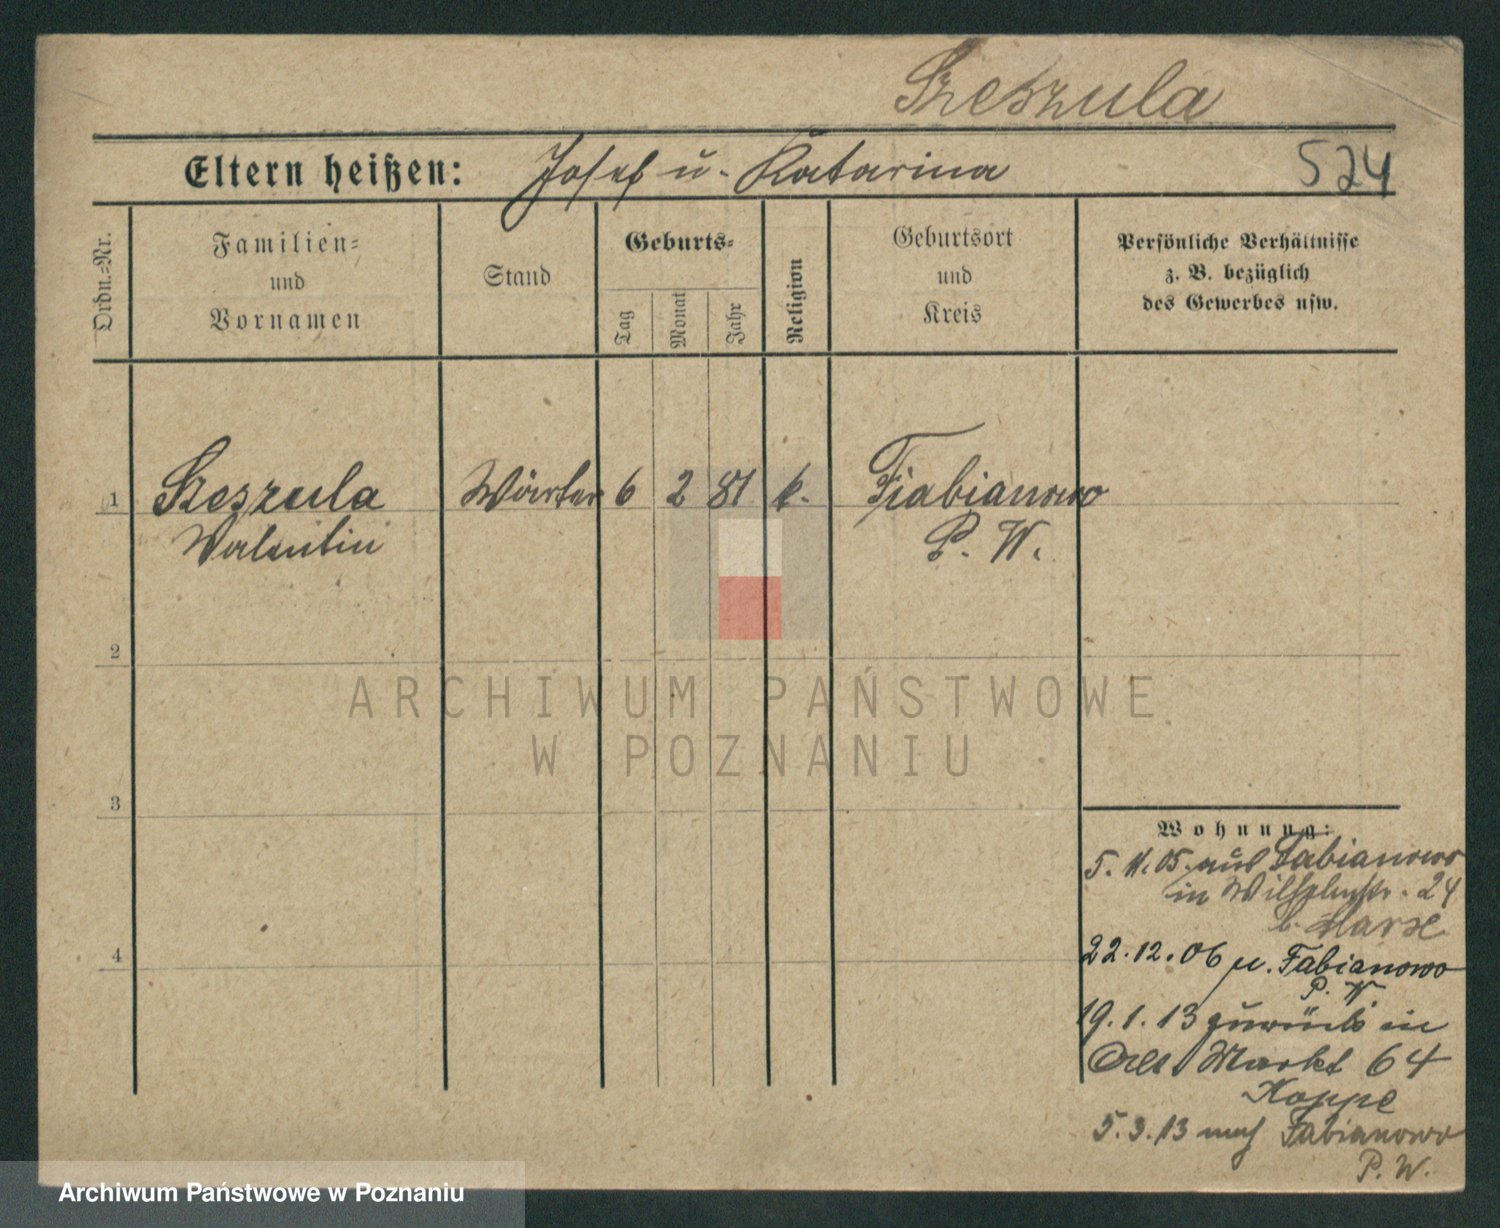 Szeszula
Eltern heißen: Josef u. Katarina 524
Ordn.=Nr.
Familien=
und
Vornamen
Stand
Geburts=
Tag
Monat
Jahr
Religion
Geburtsort
und
Kreis
Persönliche Verhältnisse
z. B. bezüglich
des Gewerbes usw.
1 Szeszula Wärter 6 2 81 k. Fabianowo
Valentin P. W.
2
ARCHIWUM PAŃSTWOWE
W POZNANIU
3
4
Wohnung:
5. 11. 05. aus Fabianowo
in Wilhelmstr. 24
b. Marx
22. 12. 06 n. Fabianowo
P. W
19. 1. 13 zurück in
Alt Markt 64
Hoppe
5. 3. 13 nach Fabianowo
P. W.
Archiwum Państwowe w Poznaniu